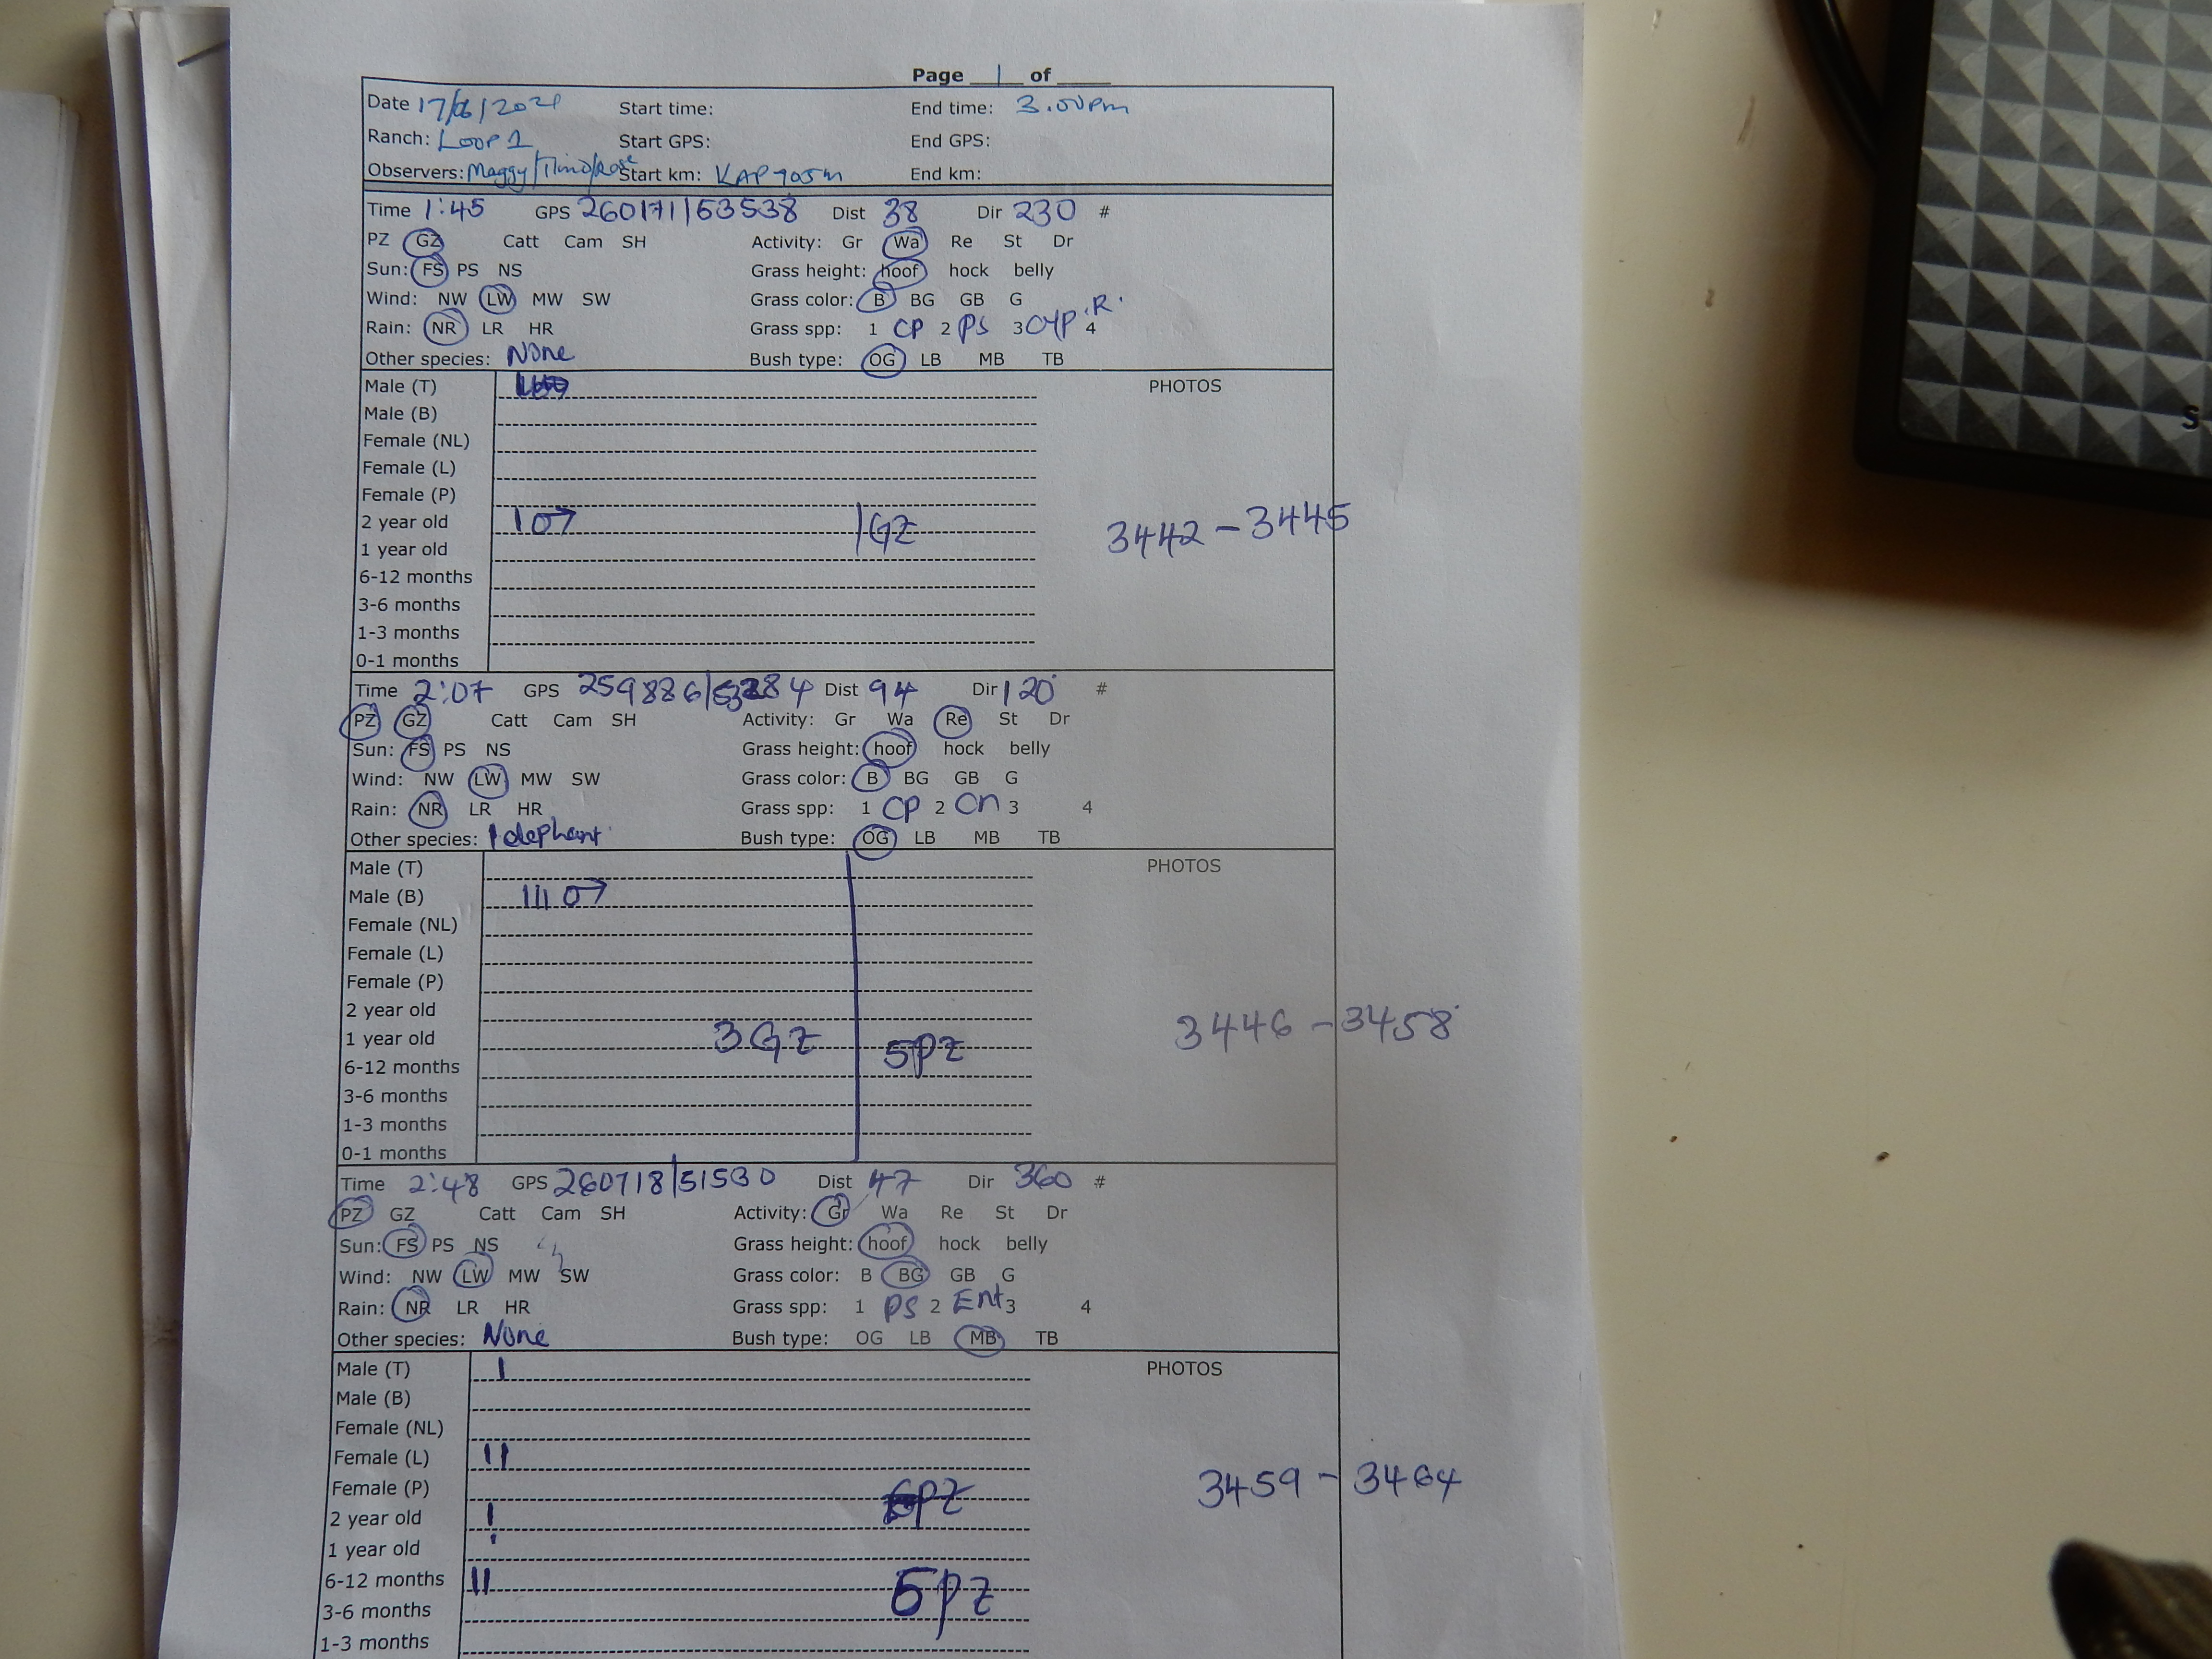 Page 1 of
Date 17/06/2021 Start time: End time: 3.00pm
Ranch: Loop 1 Start GPS: End GPS:
Observers: Maggy/Timo/Rose Start km: KAP 905m End km:
Time 1:45 GPS 260171/53538 Dist 38 Dir 230 #
PZ GZ Catt Cam SH Activity: Gr Wa Re St Dr
Sun: FS PS NS Grass height: hoof hock belly
Wind: NW LW MW SW Grass color: B BG GB G
Rain: NR LR HR Grass spp: 1 CP 2 PS 3 Cyp.R. 4
Other species: None Bush type: OG LB MB TB
Male (T) PHOTOS
Male (B)
Female (NL)
Female (L)
Female (P)
2 year old 1 ♂ 1GZ 3442 - 3445
1 year old
6-12 months
3-6 months
1-3 months
0-1 months
Time 2:07 GPS 259886/53284 Dist 94 Dir 120 #
PZ GZ Catt Cam SH Activity: Gr Wa Re St Dr
Sun: FS PS NS Grass height: hoof hock belly
Wind: NW LW MW SW Grass color: B BG GB G
Rain: NR LR HR Grass spp: 1 CP 2 Cn 3 4
Other species: 1 elephant Bush type: OG LB MB TB
Male (T) PHOTOS
Male (B) III ♂
Female (NL)
Female (L)
Female (P)
2 year old
1 year old 3GZ 5PZ 3446 - 3458
6-12 months
3-6 months
1-3 months
0-1 months
Time 2:48 GPS 260718/51530 Dist 47 Dir 360 #
PZ GZ Catt Cam SH Activity: Gr Wa Re St Dr
Sun: FS PS NS Grass height: hoof hock belly
Wind: NW LW MW SW Grass color: B BG GB G
Rain: NR LR HR Grass spp: 1 PS 2 Ent 3 4
Other species: None Bush type: OG LB MB TB
Male (T) I PHOTOS
Male (B)
Female (NL)
Female (L) II
Female (P) 3459 - 3464
2 year old I
1 year old
6-12 months II 5PZ
3-6 months
1-3 months
S